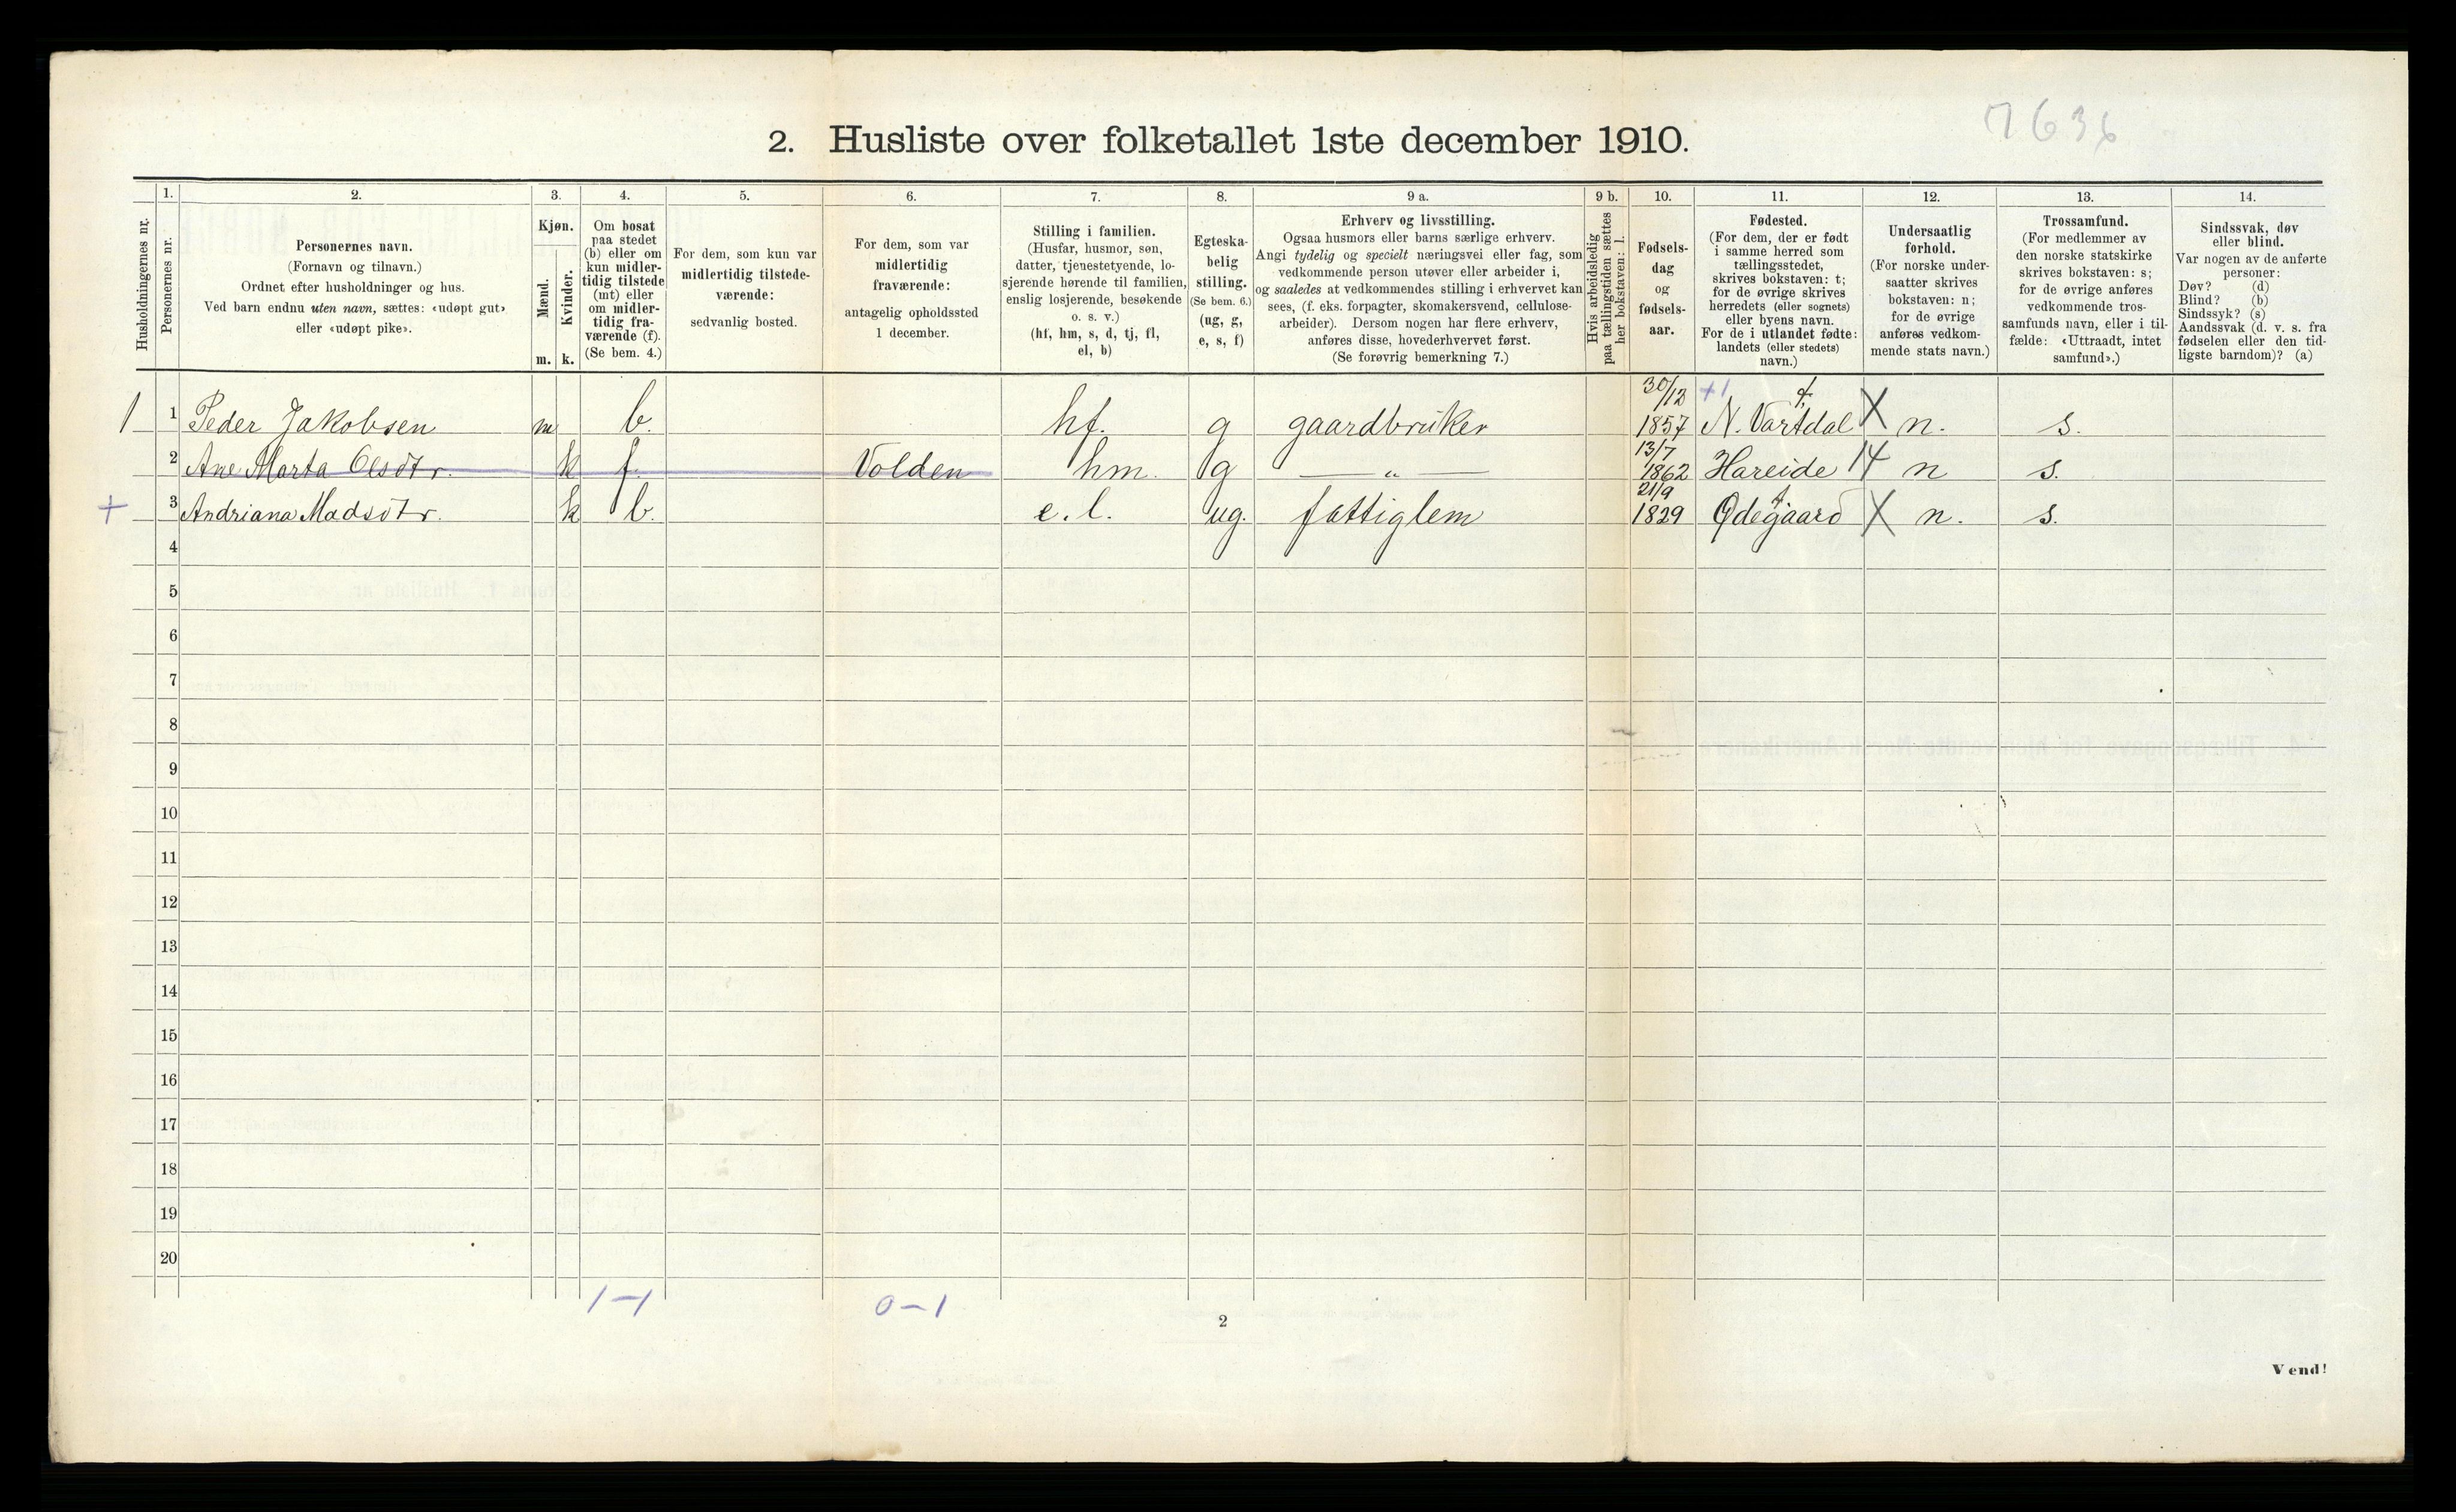 7636
2. Husliste over folketallet 1ste december 1910.
Husholdningernes nr.
1.
Personernes nr.
2.
Personernes navn.
(Fornavn og tilnavn.)
Ordnet efter husholdninger og hus.
Ved barn endnu uten navn, sættes: «udøpt gut»
eller «udøpt pike».
3.
Kjøn.
Mænd.
Kvinder.
m. k.
4.
Om bosat
paa stedet
(b) eller om
kun midler-
tidig tilstede
(mt) eller
om midler-
tidig fra-
værende (f).
(Se bem. 4.)
5.
For dem, som kun var
midlertidig tilstede-
værende:
sedvanlig bosted.
6.
For dem, som var
midlertidig
fraværende:
antagelig opholdssted
1 december.
7.
Stilling i familien.
(Husfar, husmor, søn,
datter, tjenestetyende, lo-
sjerende hørende til familien,
enslig losjerende, besøkende
o. s. v.)
(hf, hm, s, d, tj, fl,
el, b)
8.
Egteska-
belig
stilling.
(Se bem. 6.)
(ug, g,
e, s, f)
9 a.
Erhverv og livsstilling.
Ogsaa husmors eller barns særlige erhverv.
Angi tydelig og specielt næringsvei eller fag, som
vedkommende person utøver eller arbeider i,
og saaledes at vedkommendes stilling i erhvervet kan
sees, (f. eks. forpagter, skomakersvend, cellulose-
arbeider). Dersom nogen har flere erhverv,
anføres disse, hovederhvervet først.
(Se forøvrig bemerkning 7.)
9 b.
Hvis arbeidsledig
paa tællingstiden sættes
her bokstaven: l.
10.
Fødsels-
dag
og
fødsels-
aar.
11.
Fødested.
(For dem, der er født
i samme herred som
tællingsstedet,
skrives bokstaven: t;
for de øvrige skrives
herredets (eller sognets)
eller byens navn.
For de i utlandet fødte:
landets (eller stedets)
navn.)
12.
Undersaatlig
forhold.
(For norske under-
saatter skrives
bokstaven: n;
for de øvrige
anføres vedkom-
mende stats navn.)
13.
Trossamfund.
(For medlemmer av
den norske statskirke
skrives bokstaven: s;
for de øvrige anføres
vedkommende tros-
samfunds navn, eller i til-
fælde: «Uttraadt, intet
samfund».)
14.
Sindssvak, døv
eller blind.
Var nogen av de anførte
personer:
Døv? (d)
Blind? (b)
Sindssyk? (s)
Aandssvak (d. v. s. fra
fødselen eller den tid-
ligste barndom)? (a)
1 1 Peder Jakobsen m b. hf. g gaardbruker 30/12 1857 +1 N. Vartdal t. X n. s.
2 Ane Marta Olsdtr. k f. Volden hm. g — " — 13/7 1862 Hareide 14 n s.
+ 3 Andriana Madsdtr. k b. e.l. ug. fattiglem 21/9 1829 Ødegaard t X n. s.
4
5
6
7
8
9
10
11
12
13
14
15
16
17
18
19
20
1–1 0–1
2
Vend!